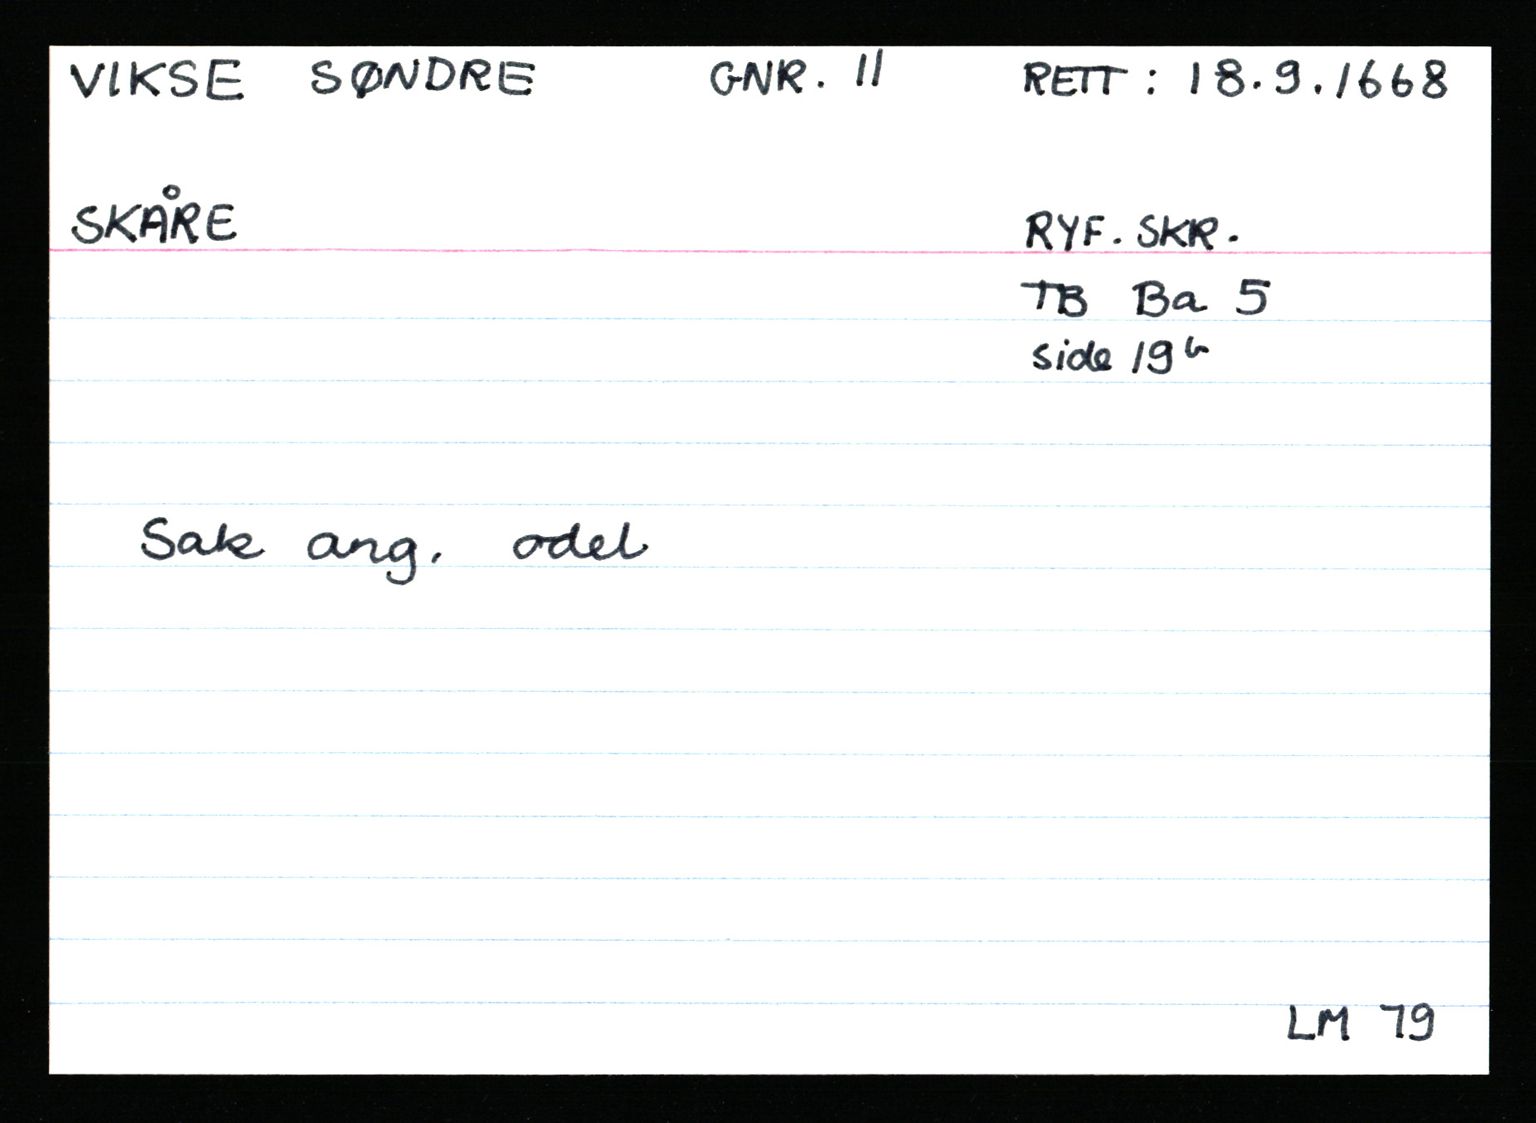 VIKSE SØNDRE GNR. 11 RETT: 18.9.1668
SKÅRE RYF. SKR.
TB Ba 5
side 19b
Sak ang. odel
LM 79